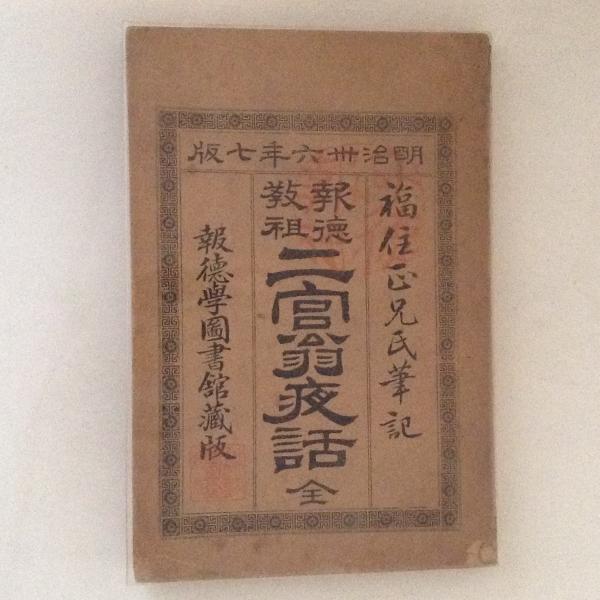 明治卅六年七版
福住正兄氏筆記
報德
教祖
二宮翁夜話 全
報德學圖書館藏版